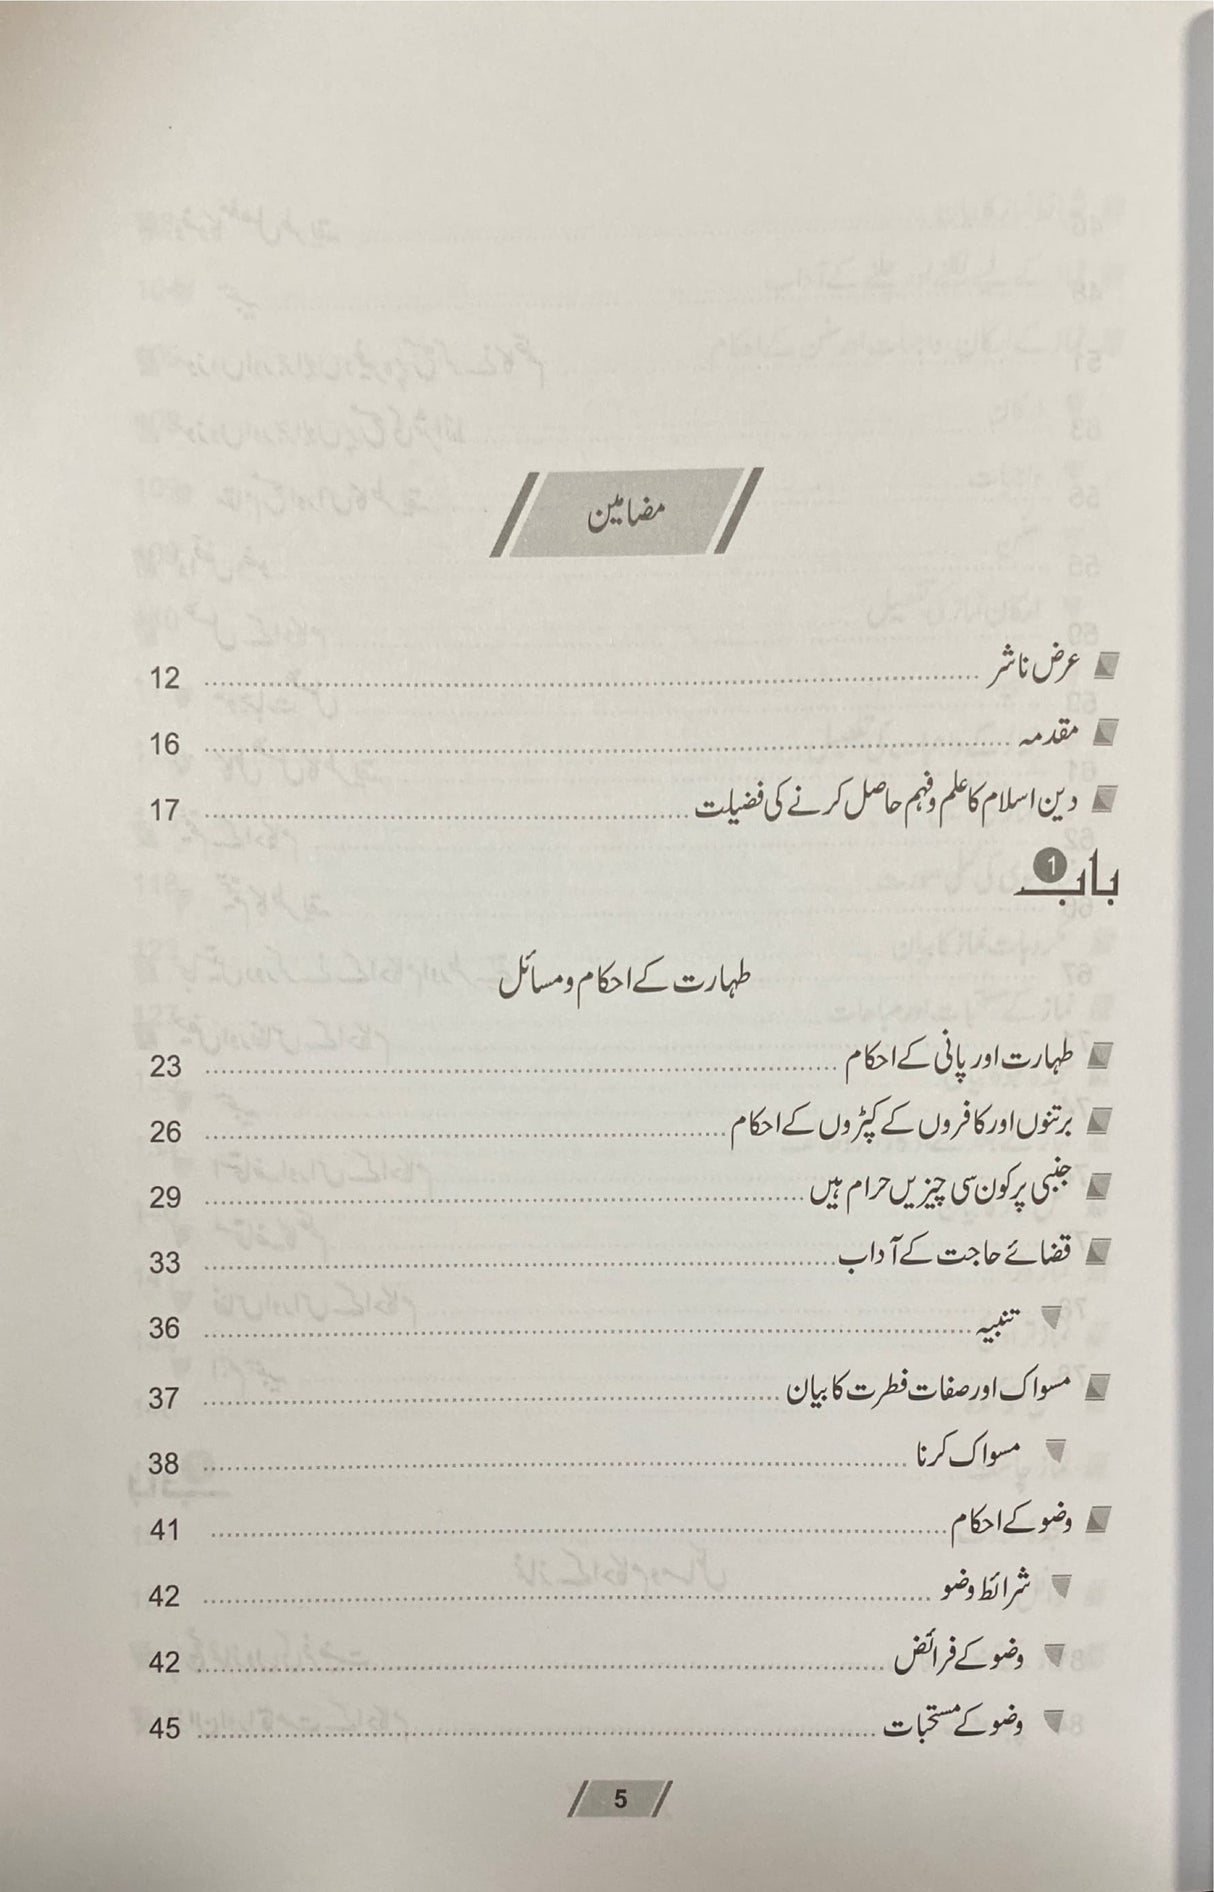 مضامین
عرض ناشر ........ 12
مقدمہ ........ 16
دین اسلام کا علم و فہم حاصل کرنے کی فضیلت ........ 17
باب 1
طہارت کے احکام و مسائل
طہارت اور پانی کے احکام ........ 23
برتنوں اور کافروں کے کپڑوں کے احکام ........ 26
جنبی پر کون سی چیزیں حرام ہیں ........ 29
قضائے حاجت کے آداب ........ 33
تنبیہ ........ 36
مسواک اور صفات فطرت کا بیان ........ 37
مسواک کرنا ........ 38
وضو کے احکام ........ 41
شرائط وضو ........ 42
وضو کے فرائض ........ 42
وضو کے مستحبات ........ 45
5